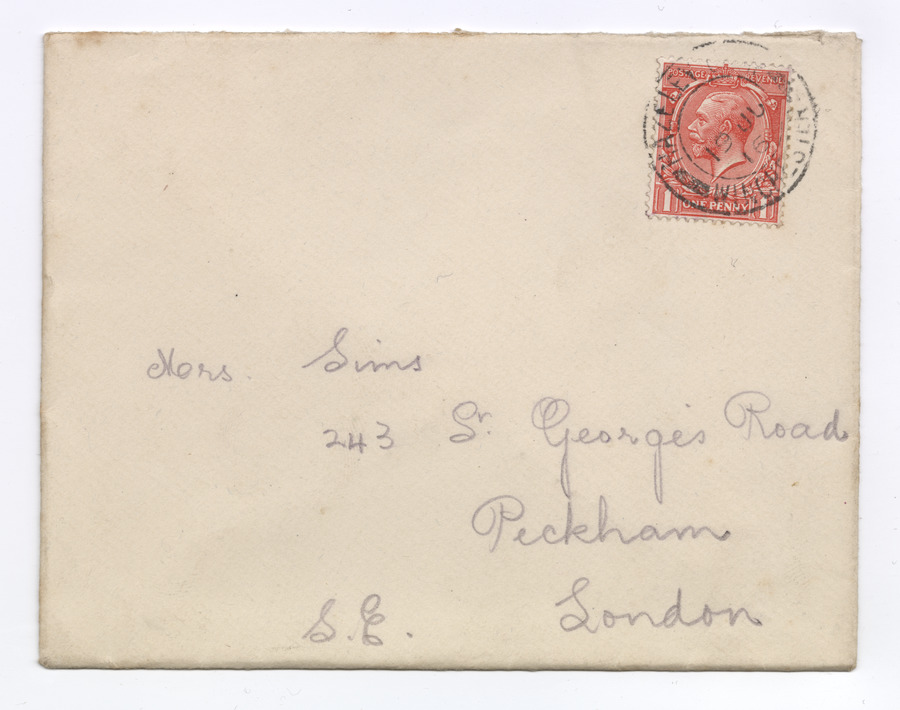 POSTAGE REVENUE
1 ONE PENNY 1
Mrs. Sims
243 St. Georges Road
Peckham
London
S.E.